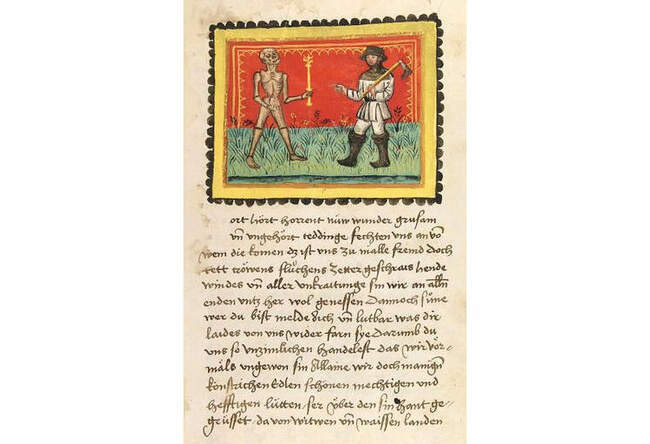 ort hört horrent nüw wunder grusam
vn̄ vngehört teddinge fechten vns an von
wem die komen dz ist vns zu malle fremd doch
tett tröwens fluͦchens zetter geschrais hende
windes vn̄ aller vnkraitunge sin wir an alln̄
enden vntz her wol genessen Dannoch süne
wer du bist melde dich vn̄ lutbar was dir
laides von vns wider farn sye Darumb du
vns so vnzimlichen handelest das wir vor-
mals vngewon sin Allaine wir doch manign̄
edlen schönen mechtigen vnd
hefftigen lütten ser über den hant ge-
grüsset da von witwen vn̄ waissen landen